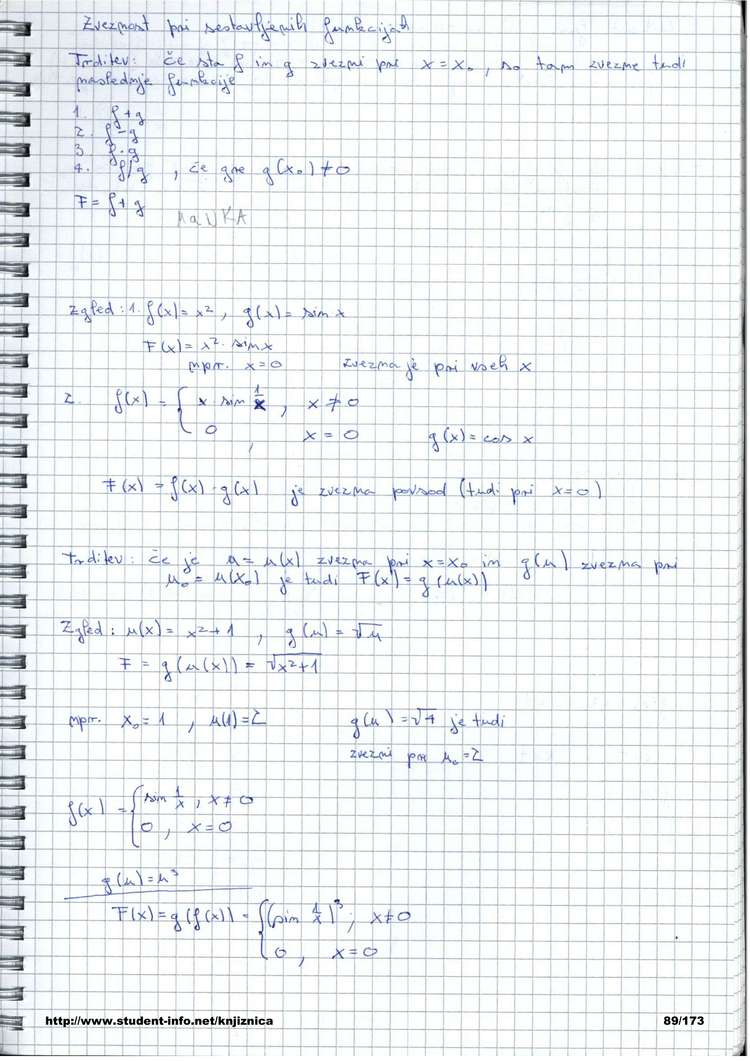 Zveznost pri sestavljenih funkcijah
Trditev: če sta f in g zvezni pri x = x₀, so tam zvezne tudi
naslednje funkcije
1. f+g
2. f-g
3. f·g
4. f/g , če gre g(x₀) ≠ 0
F = f+g
MaUKA
Zgled: 1. f(x) = x², g(x) = sin x
F(x) = x² · sin x
npr. x=0 zvezna je pri vseh x
2. f(x) = { x sin 1/x , x ≠ 0
0 , x = 0 g(x) = cos x
F(x) = f(x) · g(x) je zvezna povsod (tudi pri x=0)
Trditev: če je u = u(x) zvezna pri x=x₀ in g(u) zvezna pri
u₀ = u(x₀) je tudi F(x) = g(u(x))
Zgled: u(x) = x²+1 , g(u) = √u
F = g(u(x)) = √x²+1
npr. x₀ = 1 , u(1) = 2 g(u) = √4 je tudi
zvezni pri u₀ = 2
f(x) = { sin 1/x , x ≠ 0
0 , x = 0
g(u) = u³
F(x) = g(f(x)) = { (sin 1/x)³ ; x ≠ 0
0 , x = 0
http://www.student-info.net/knjiznica 89/173